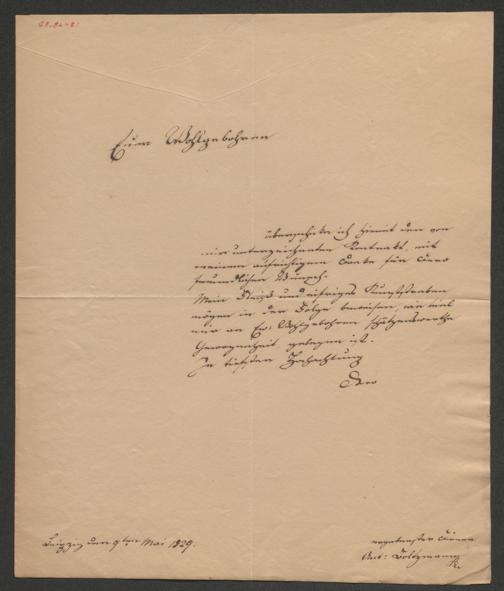 Euer Wohlgebohren
überschicke ich hiemit den von
mir unterzeichneten Kontrakt, mit
meinem aufrichtigen Danke für Ihren
freundlichen Wunsch.
Mein Fleiß und eifriges Kunststreben
mögen in der Folge beweisen, wie viel
mir an Ew: Wohlgebohren schätzenswerthe
Gewogenheit gelegen ist.
In tiefster Hochachtung
Dero
Leipzig den 9ten Mai 1829.
ergebenster Diener
Ant: